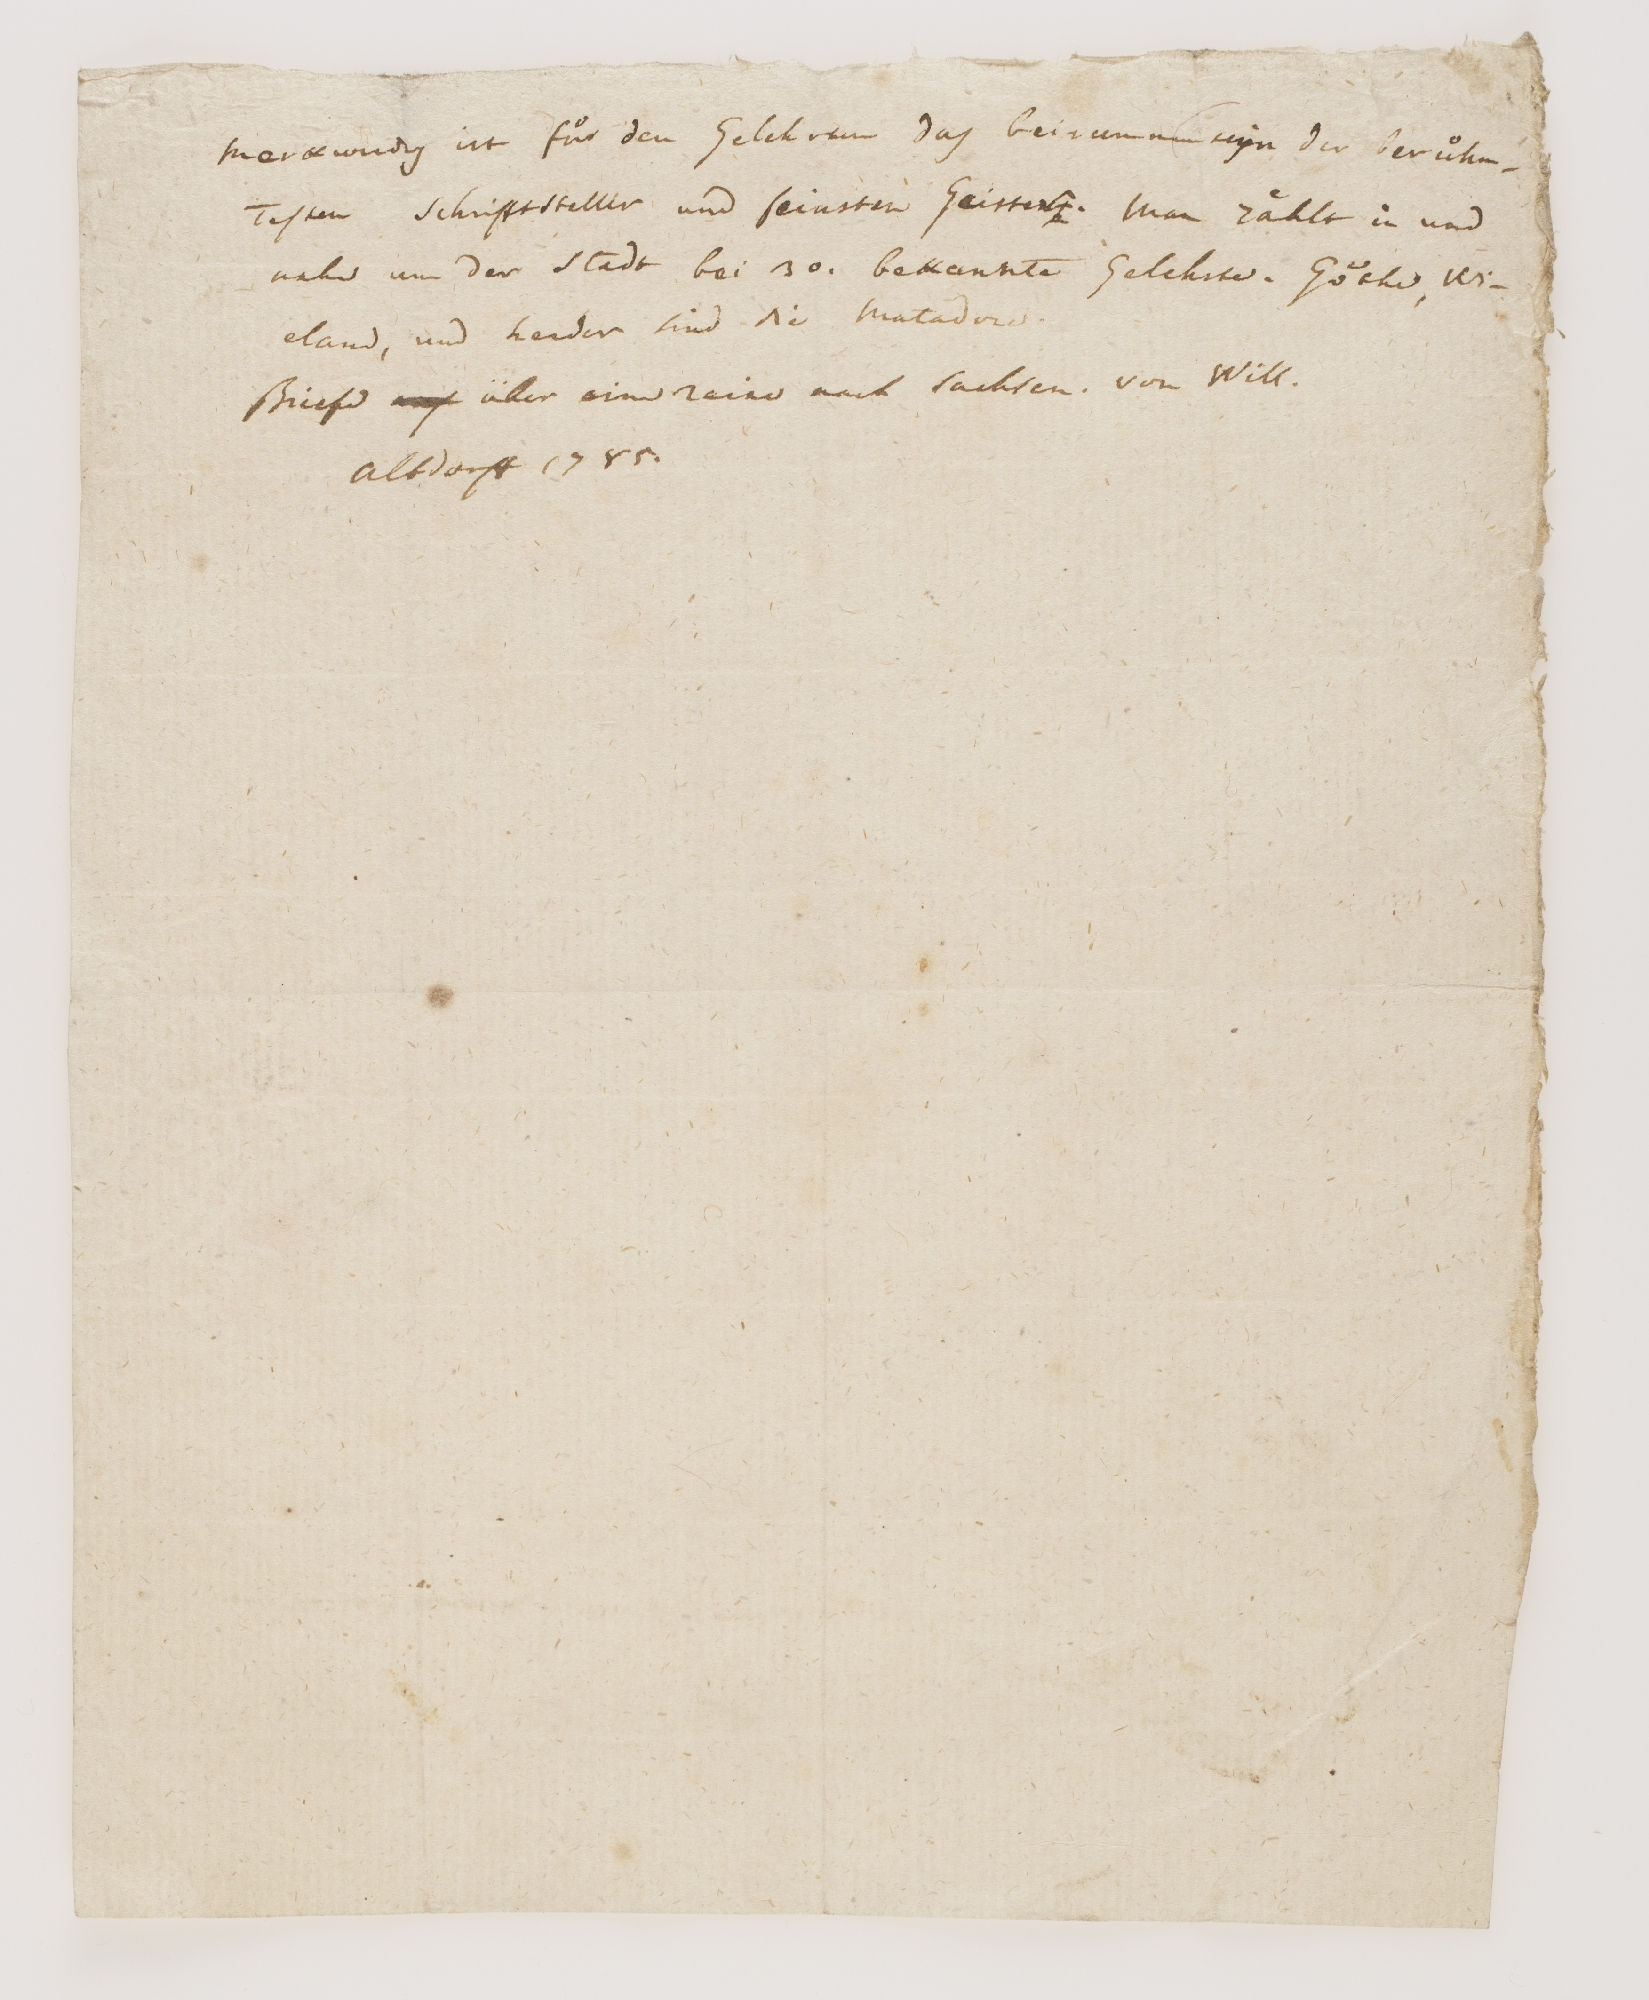 merkwürdig ist für den Gelehrten das beisammenseyn der berühm-
testen Schriftsteller und feinsten Geister. Man zählt in und
nahe um der Stadt bei 30. bekannte Gelehrte. Göthe, Wi-
eland, und Herder sind die Matadore.
Briefe über eine reise nach Sachsen. von Will.
Altdorff 1785.